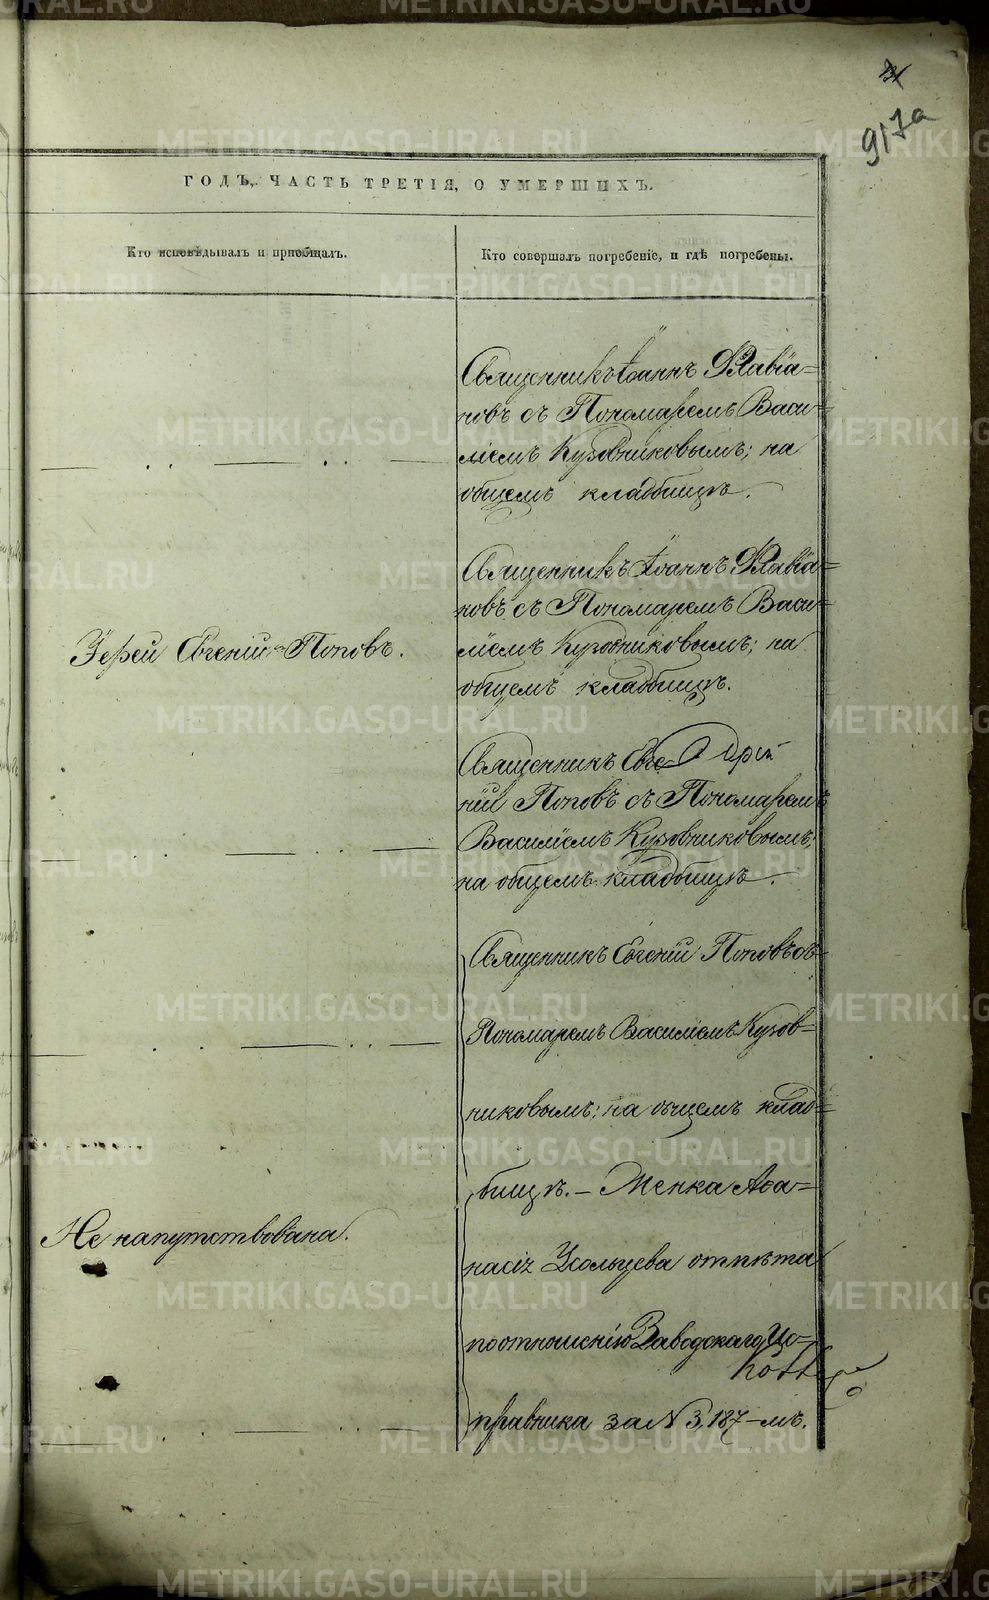 917а
ГОДЪ, ЧАСТЬ ТРЕТІЯ, О УМЕРШИХЪ.
Кто исповѣдывалъ и пріобщалъ.
Кто совершалъ погребеніе, и гдѣ погребены.
Священникъ Іоаннъ Флавіа=
новъ съ Пономаремъ Васи=
ліемъ Кузовниковымъ; на
общемъ кладбищѣ.
Священникъ Іоаннъ Флавіа=
новъ съ Пономаремъ Васи=
ліемъ Кузовниковымъ; на
общемъ кладбищѣ.
Іерей Евгеній Поповъ.
Священникъ Евге
ній Поповъ съ Пономаремъ
Василіемъ Кузовниковымъ;
на общемъ кладбищѣ.
Священникъ Евгеній Поповъ съ
Пономаремъ Василіемъ Кузов=
никовымъ; на общемъ клад=
бищѣ. – Женка Аѳа=
Не напутствована.
насія Усольцева отпѣта
по отношенію Заводскаго Ис=
правника за N 3,187-мъ.
METRIKI.GASO-URAL.RU